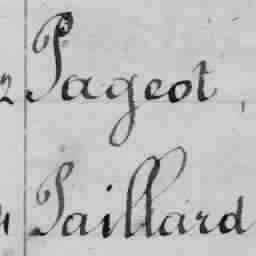 2 Pageot,
4 Paillard